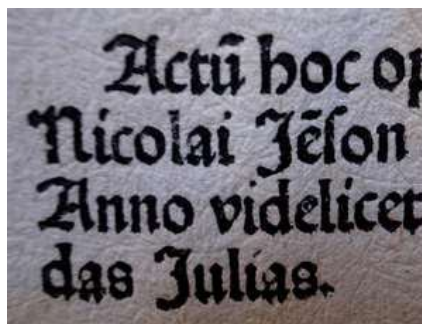 Actū hoc op
Nicolai Jēſon
Anno videlicet
das Julias.